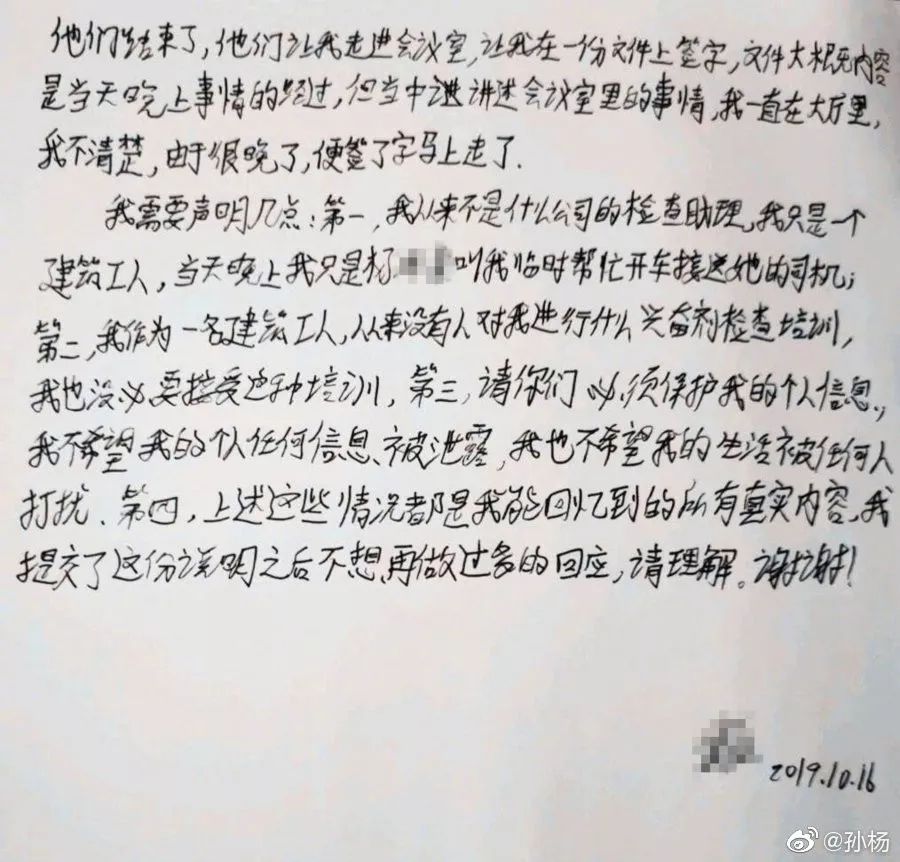 他们结束了,他们让我走进会议室,让我在一份文件上签字,文件大概内容
是当天晚上事情的经过,但当中进讲述会议室里的事情,我一直在大厅里,
我不清楚,由于很晚了,便签了字马上走了.
我需要声明几点:第一,我从来不是什么公司的检查助理,我只是一个
建筑工人,当天晚上我只是杨 叫我临时帮忙开车接送她的司机;
第二,我作为一名建筑工人,从来没有人对我进行什么兴奋剂检查培训,
我也没必要接受这种培训,第三,请你们必须保护我的个人信息,
我不希望我的个人任何信息被泄露,我也不希望我的生活被任何人
打扰.第四,上述这些情况都是我能回忆到的所有真实内容,我
提交了这份说明之后不想再做过多的回应,请理解。谢谢!
2019.10.16
@孙杨